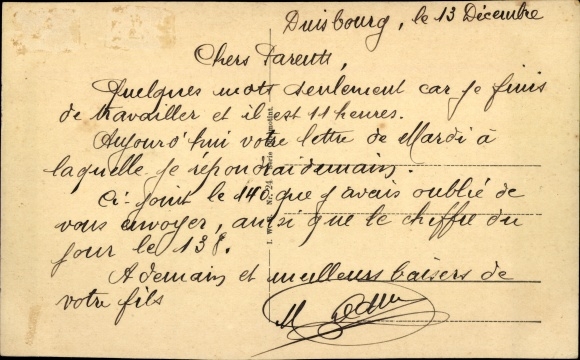 Duisbourg, le 13 Décembre
Chers Parents,
Quelques mots seulement car je finis
de travailler et il est 11 heures.
Aujourd'hui votre lettre de Mardi à
laquelle je répondrai demain.
Ci-joint le 140 que j'avais oublié de
vous envoyer, ainsi que le chiffre du
jour le 138.
A demain et meilleurs baisers de
votre fils
M
Nr. 24